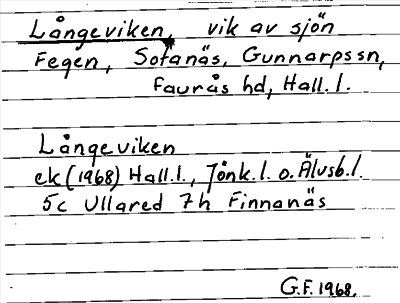 Långeviken, vik av sjön
Fegen, Sotanäs, Gunnarpssn,
Faurås hd, Hall.l.
Långeviken
ek (1968) Hall.l., Jönk.l. o. Älvsb.l.
5c Ullared 7h Finnanäs
G.F. 1968.